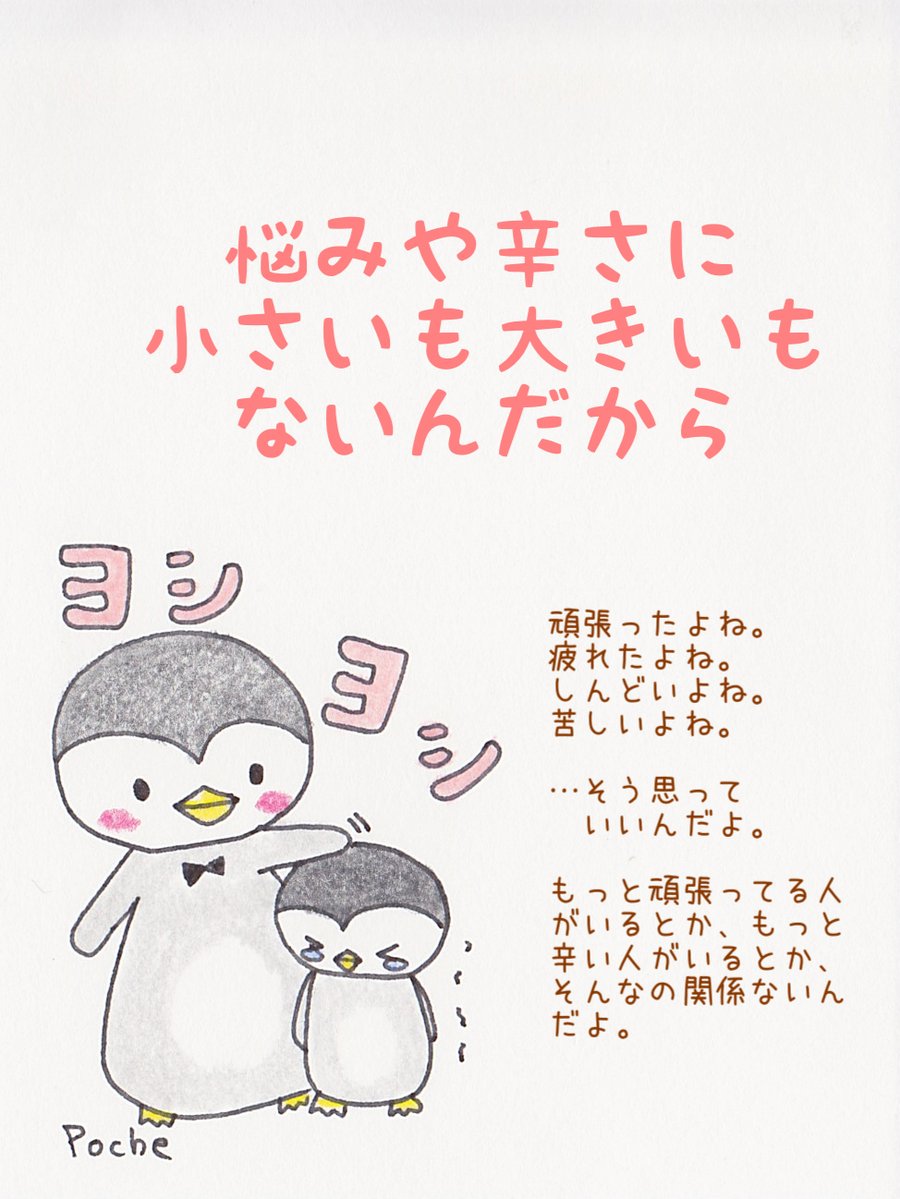 悩みや辛さに
小さいも大きいも
ないんだから
ヨシ
ヨシ
頑張ったよね。
疲れたよね。
しんどいよね。
苦しいよね。
…そう思って
いいんだよ。
もっと頑張ってる人
がいるとか、もっと
辛い人がいるとか、
そんなの関係ないん
だよ。
Poche